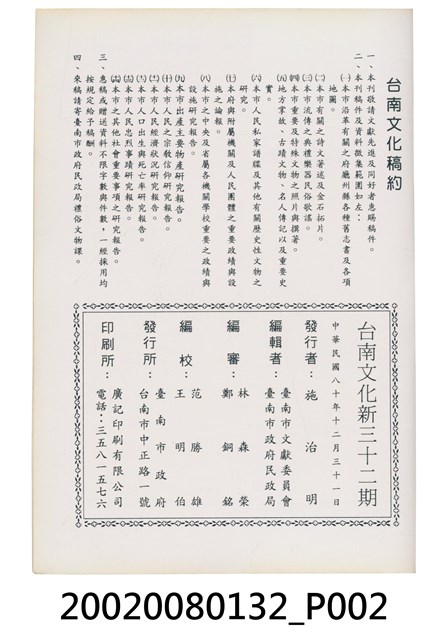 台南文化稿約
一、本刊敬請文獻先進及同好者惠賜稿件。
二、本刊稿件及資料徵集範圍如左：
㈠本市沿革有關之府廳州縣各種舊志書及各項
地圖。
㈡本市有關之詩文著述及金石拓片。
㈢本市流傳之典禮樂器民俗歌謠。
㈣本市重要及特殊文物之照片與撰著。
㈤地方掌故、古蹟文物、名人傳記以及重要史
實。
㈥本市人民私家譜牒及其他有關歷史性文物之
研究。
㈦本府與附屬機關及人民團體之重要政績與設
施之論報。
㈧本市之中央及省屬各機關學校重要之政績與
設施研究報告。
㈨本市出產主要物產研究報告。
㈩本市人民之宗教信仰研究報告。
本市人民經濟狀況研究報告。
本市人口出生與死亡率研究報告。
本市人民忠烈事蹟研究報告。
本市之其他社會重要事項之研究報告。
三、惠稿或贈送資料不限字數與件數，一經採用均
按規定給予稿酬。
四、來稿請寄臺南市政府民政局禮俗文物課。
台南文化新三十二期
中華民國八十年十二月三十一日
發行者：施治明
編輯者：臺南市文獻委員會
臺南市政府民政局
編審：林森榮
鄭銅銘
編校：范勝雄
王明伯
發行所：臺南市政府
台南市中正路一號
印刷所：廣記印刷有限公司
電話：三五八一五七六
20020080132_P002